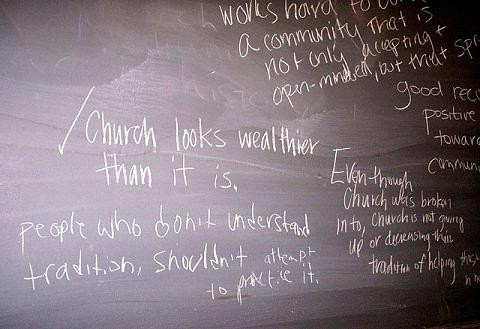 works hard to
a community that is
not only accepting +
open-minded, but that
good
positive
towar
commun
✓ Church looks wealthier
than it is.
people who don't understand
tradition, shouldn't attempt
to practice it.
Even-though
Church was broken
into, Church is not giving
up or decreasing their
tradition of helping